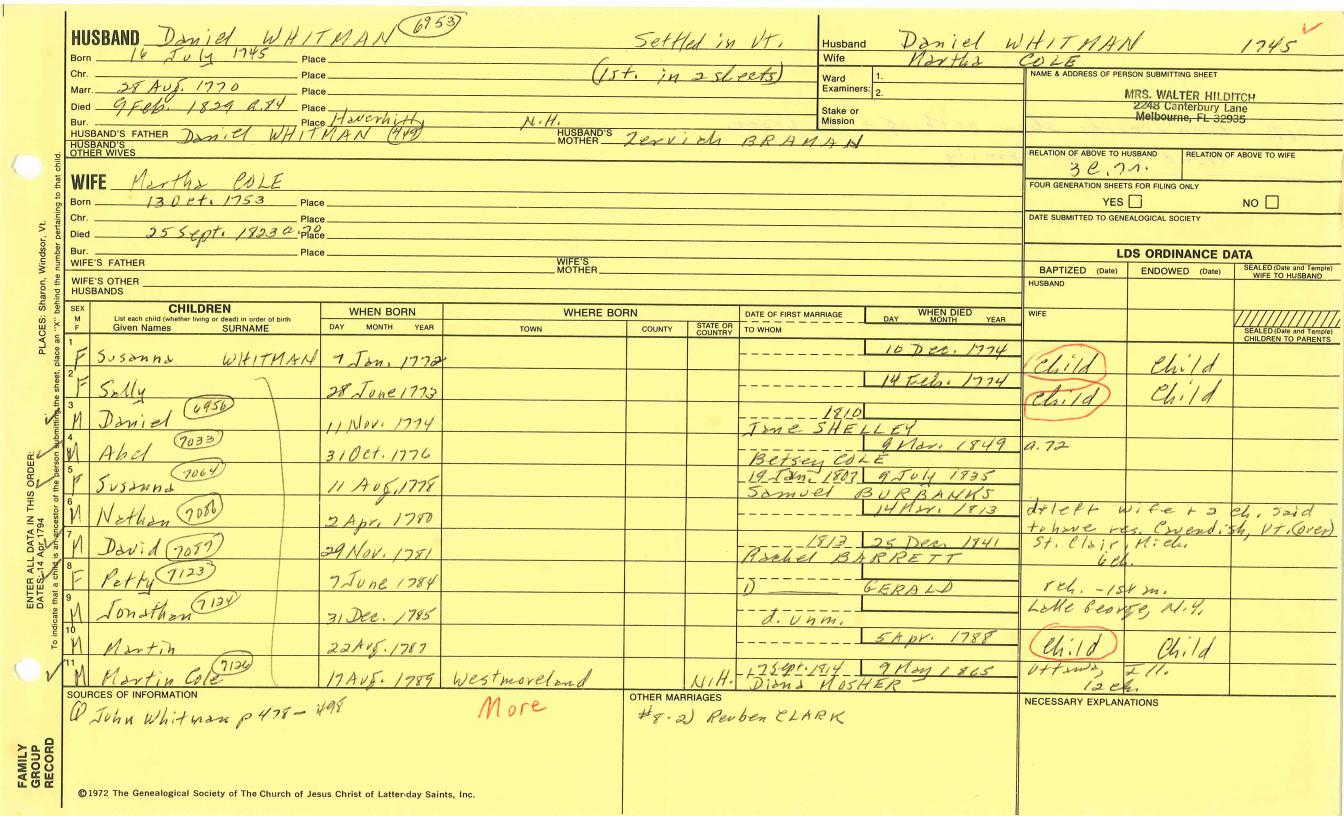 HUSBAND Daniel WHITMAN 6953 Settled in Vt.
Born 16 July 1745 Place
(1st. in 2 sheets)
Chr. Place
Marr. 28 Aug. 1770 Place
Died 9 Feb. 1829 a.84 Place
Bur. Place Haverhill, N.H.
HUSBAND'S FATHER Daniel WHITMAN HUSBAND'S MOTHER Zerviah BRAMAN
HUSBAND'S OTHER WIVES
Husband Daniel WHITMAN 1745
Wife Martha COLE
Ward Examiners: 1.
2.
Stake or Mission
NAME & ADDRESS OF PERSON SUBMITTING SHEET
MRS. WALTER HILDITCH
2248 Canterbury Lane
Melbourne, FL 32935
RELATION OF ABOVE TO HUSBAND RELATION OF ABOVE TO WIFE
FOUR GENERATION SHEETS FOR FILING ONLY
YES NO
DATE SUBMITTED TO GENEALOGICAL SOCIETY
WIFE Martha COLE
Born 13 Oct. 1753 Place
Chr. Place
Died 25 Sept. 1823 a.70 Place
Bur. Place
WIFE'S FATHER WIFE'S MOTHER
WIFE'S OTHER HUSBANDS
LDS ORDINANCE DATA
BAPTIZED (Date) ENDOWED (Date) SEALED (Date and Temple) WIFE TO HUSBAND
HUSBAND
WIFE
SEALED (Date and Temple) CHILDREN TO PARENTS
SEX M F
CHILDREN
List each child (whether living or dead) in order of birth
Given Names SURNAME
WHEN BORN
DAY MONTH YEAR
WHERE BORN
TOWN COUNTY STATE OR COUNTRY
DATE OF FIRST MARRIAGE
TO WHOM
WHEN DIED
DAY MONTH YEAR
1 F Susanna WHITMAN 7 Jan. 1772 10 Dec. 1774 Child Child
2 F Sally 28 June 1773 14 Feb. 1774 Child Child
3 M Daniel 6956 11 Nov. 1774 1810
Jane SHELLEY
4 M Abel 7033 31 Oct. 1776 9 Mar. 1849 a.72
Betsey COLE
5 F Susanna 7064 11 Aug. 1778 19 Jan. 1807 9 July 1835
Samuel BURBANKS
6 M Nathan 7086 2 Apr. 1780 14 Mar. 1813 left wife + 2 ch. said
to have res. Cavendish, VT. (over)
7 M David 7087 29 Nov. 1781 1813 25 Dec. 1841 St. Clair, Mich.
Rachel BARRETT 6 ch.
8 F Patty 7123 7 June 1784
1) GERALD rch. - 1st m.
9 M Jonathan 7124 31 Dec. 1785 d. unm. Lake George, N.Y.
10 M Martin 22 Aug. 1787 5 Apr. 1788 Child Child
11 M Martin Cole 7126 17 Aug. 1789 Westmoreland N.H. 17 Sept. 1814 9 May 1865 Ottawa, Ill.
Diana MOSHER 12 ch.
SOURCES OF INFORMATION
John Whitman p 478-498
More
OTHER MARRIAGES
#8-2) Reuben CLARK
NECESSARY EXPLANATIONS
©1972 The Genealogical Society of The Church of Jesus Christ of Latter-day Saints, Inc.
FAMILY GROUP RECORD
ENTER ALL DATA IN THIS ORDER:
DATES: 14 Apr 1794 PLACES: Sharon, Windsor, Vt.
To indicate that a child is an ancestor of the person submitting the sheet, place an "X" behind the number pertaining to that child.